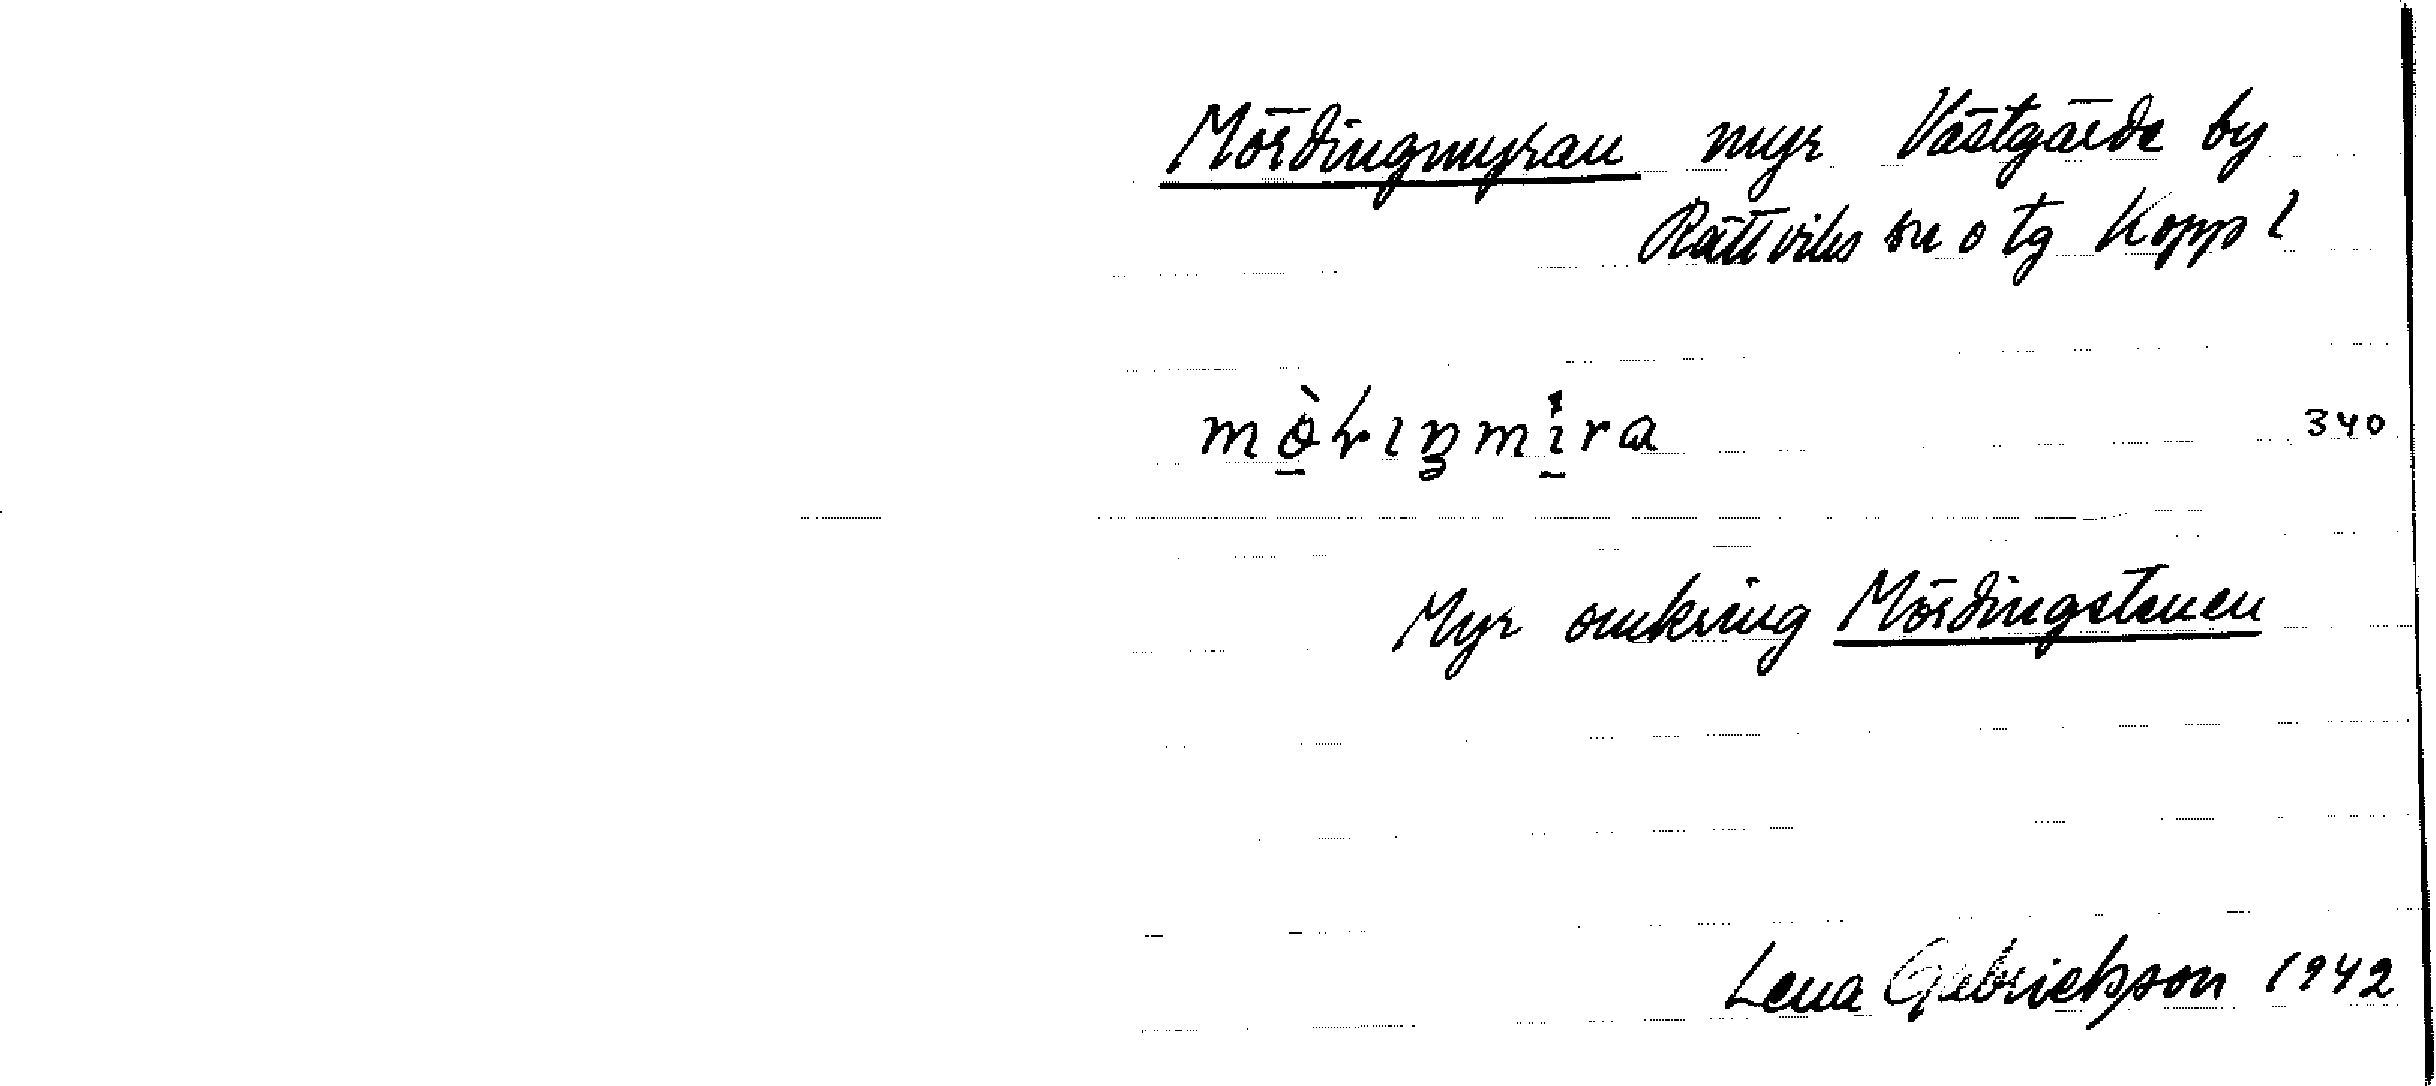 Mördingmyran myr Västgärde by
Rättviks sn o tg Kopp l
340
Myr omkring Mördingstenen
Lena Gabrielsson 1942